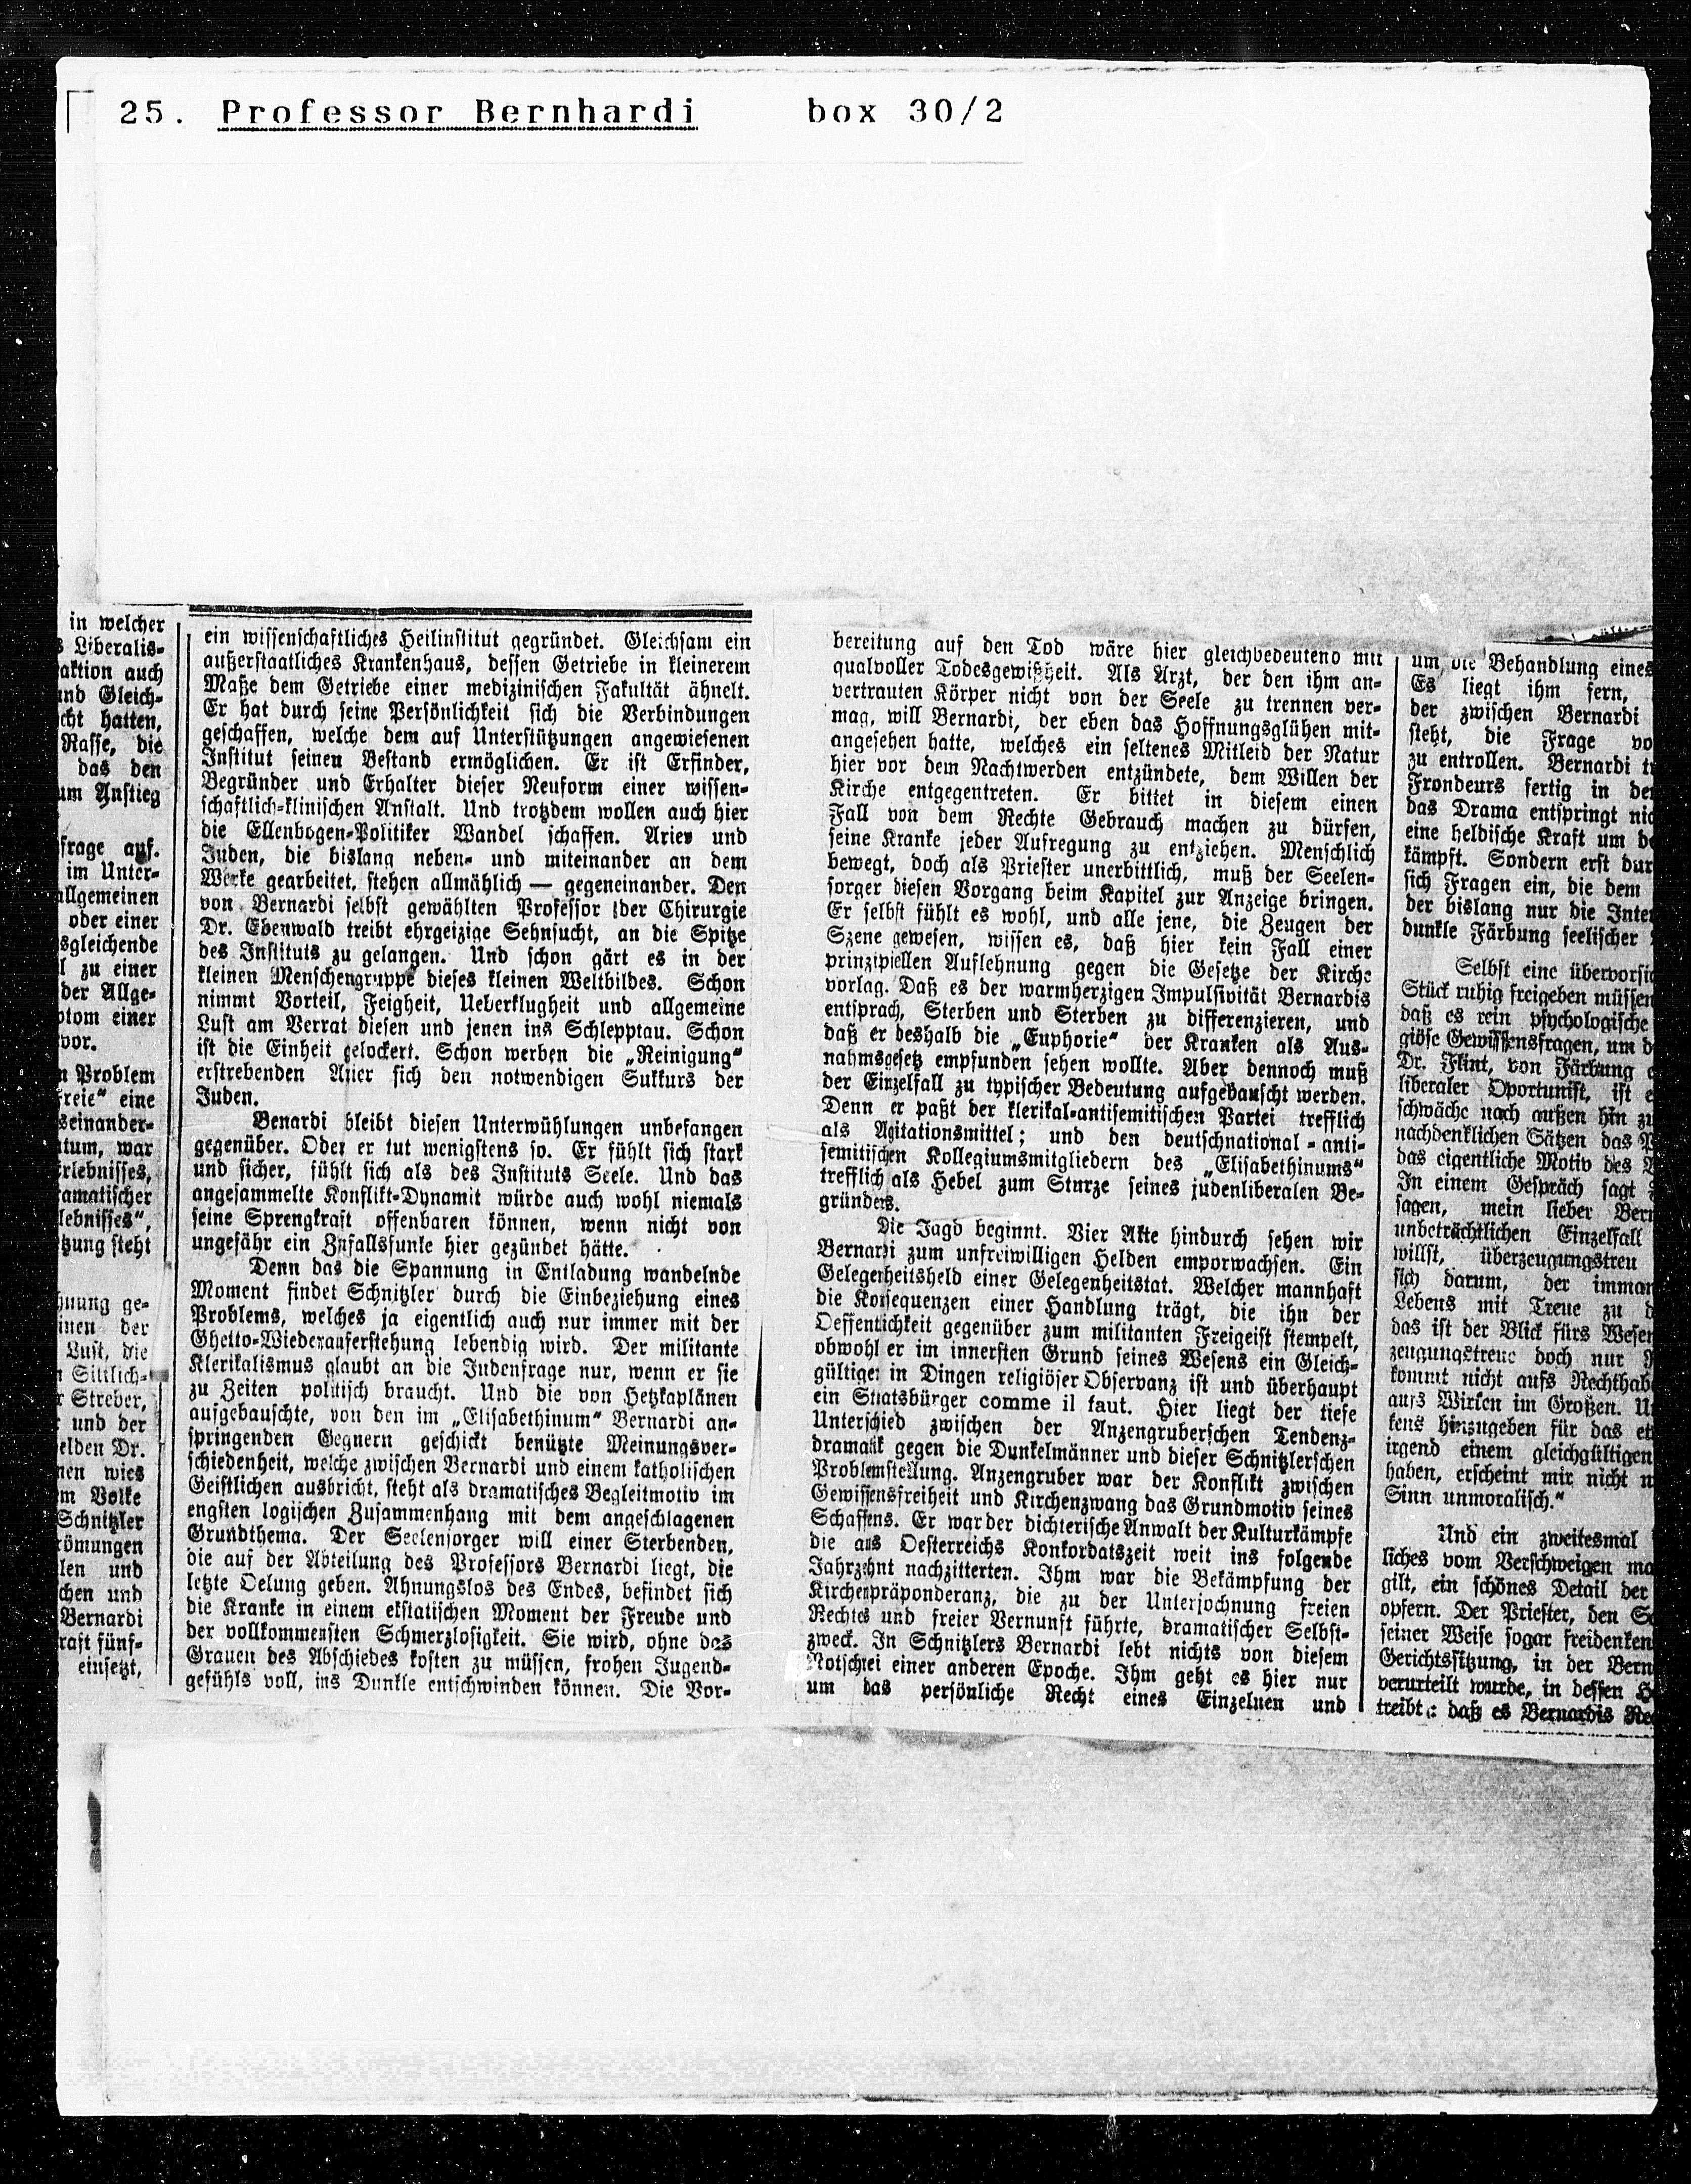 25. Professor Bernhardi box 30/2
in welcher
Liberalis-
aktion auch
und Gleich-
cht hatten,
Rasse, die
das den
um Anstieg
frage auf.
im Unter-
allgemeinen
oder einer
sgleichende
l zu einer
der Allge-
ptom einer
vor.
n Problem
Freie“ eine
seinander-
tum, war
Erlebnisses,
ramatischer
lebnisses“,
tzung steht
hnung ge-
inen der
Lust, die
n Sittlich-
r Streber,
r und der
elden Dr.
nen wies
em Volke
Schnitzler
römungen
len und
chen und
Bernardi
raft fünf-
einsetzt,
ein wissenschaftliches Heilinstitut gegründet. Gleichsam ein
außerstaatliches Krankenhaus, dessen Getriebe in kleinerem
Maße dem Getriebe einer medizinischen Fakultät ähnelt.
Er hat durch seine Persönlichkeit sich die Verbindungen
geschaffen, welche dem auf Unterstützungen angewiesenen
Institut seinen Bestand ermöglichen. Er ist Erfinder,
Begründer und Erhalter dieser Neuform einer wissen-
schaftlich-klinischen Anstalt. Und trotzdem wollen auch hier
die Ellenbogen-Politiker Wandel schaffen. Arier und
Juden, die bislang neben- und miteinander an dem
Werke gearbeitet, stehen allmählich — gegeneinander. Den
von Bernardi selbst gewählten Professor der Chirurgie
Dr. Ebenwald treibt ehrgeizige Sehnsucht, an die Spitze
des Instituts zu gelangen. Und schon gärt es in der
kleinen Menschengruppe dieses kleinen Weltbildes. Schon
nimmt Vorteil, Feigheit, Ueberklugheit und allgemeine
Lust am Verrat diesen und jenen ins Schlepptau. Schon
ist die Einheit gelockert. Schon werben die „Reinigung“
erstrebenden Arier sich den notwendigen Sukkurs der
Juden.
Benardi bleibt diesen Unterwühlungen unbefangen
gegenüber. Oder er tut wenigstens so. Er fühlt sich stark
und sicher, fühlt sich als des Instituts Seele. Und das
angesammelte Konflikt-Dynamit würde auch wohl niemals
seine Sprengkraft offenbaren können, wenn nicht von
ungefähr ein Zufallsfunke hier gezündet hätte.
Denn das die Spannung in Entladung wandelnde
Moment findet Schnitzler durch die Einbeziehung eines
Problems, welches ja eigentlich auch nur immer mit der
Ghetto-Wiederauferstehung lebendig wird. Der militante
Klerikalismus glaubt an die Judenfrage nur, wenn er sie
zu Zeiten politisch braucht. Und die von Hetzkaplänen
aufgebauschte, von den im „Elisabethinum“ Bernardi an-
springenden Gegnern geschickt benützte Meinungsver-
schiedenheit, welche zwischen Bernardi und einem katholischen
Geistlichen ausbricht, steht als dramatisches Begleitmotiv im
engsten logischen Zusammenhang mit dem angeschlagenen
Grundthema. Der Seelensorger will einer Sterbenden,
die auf der Abteilung des Professors Bernardi liegt, die
letzte Oelung geben. Ahnungslos des Endes, befindet sich
die Kranke in einem ekstatischen Moment der Freude und
der vollkommensten Schmerzlosigkeit. Sie wird, ohne das
Grauen des Abschiedes kosten zu müssen, frohen Jugend-
gefühls voll, ins Dunkle entschwinden können. Die Vor-
bereitung auf den Tod wäre hier gleichbedeutend mit
qualvoller Todesgewißheit. Als Arzt, der den ihm an-
vertrauten Körper nicht von der Seele zu trennen ver-
mag, will Bernardi, der eben das Hoffnungsglühen mit-
angesehen hatte, welches ein seltenes Mitleid der Natur
hier vor dem Nachtwerden entzündete, dem Willen der
Kirche entgegentreten. Er bittet in diesem einen
Fall von dem Rechte Gebrauch machen zu dürfen,
seine Kranke jeder Aufregung zu entziehen. Menschlich
bewegt, doch als Priester unerbittlich, muß der Seelen-
sorger diesen Vorgang beim Kapitel zur Anzeige bringen.
Er selbst fühlt es wohl, und alle jene, die Zeugen der
Szene gewesen, wissen es, daß hier kein Fall einer
prinzipiellen Auflehnung gegen die Gesetze der Kirche
vorlag. Daß es der warmherzigen Impulsivität Bernardis
entsprach, Sterben und Sterben zu differenzieren, und
daß er deshalb die „Euphorie“ der Kranken als Aus-
nahmsgesetz empfunden sehen wollte. Aber dennoch muß
der Einzelfall zu typischer Bedeutung aufgebauscht werden.
Denn er paßt der klerikal-antisemitischen Partei trefflich
als Agitationsmittel; und den deutschnational-anti-
semitischen Kollegiumsmitgliedern des „Elisabethinums“
trefflich als Hebel zum Sturze seines judenliberalen Be-
gründers.
Die Jagd beginnt. Vier Akte hindurch sehen wir
Bernardi zum unfreiwilligen Helden emporwachsen. Ein
Gelegenheitsheld einer Gelegenheitstat. Welcher mannhaft
die Konsequenzen einer Handlung trägt, die ihn der
Oeffentlichkeit gegenüber zum militanten Freigeist stempelt,
obwohl er im innersten Grund seines Wesens ein Gleich-
gültiger in Dingen religiöser Observanz ist und überhaupt
ein Staatsbürger comme il faut. Hier liegt der tiefe
Unterschied zwischen der Anzengruberschen Tendenz-
dramatik gegen die Dunkelmänner und dieser Schnitzlerschen
Problemstellung. Anzengruber war der Konflikt zwischen
Gewissensfreiheit und Kirchenzwang das Grundmotiv seines
Schaffens. Er war der dichterische Anwalt der Kulturkämpfe
die aus Oesterreichs Konkordatszeit weit ins folgende
Jahrzehnt nachzitterten. Ihm war die Bekämpfung der
Kirchenpräponderanz, die zu der Unterjochnung freien
Rechtes und freier Vernunft führte, dramatischer Selbst-
zweck. In Schnitzlers Bernardi lebt nichts von diesem
Notschrei einer anderen Epoche. Ihm geht es hier nur
um das persönliche Recht eines Einzelnen und
um die Behandlung eines
Es liegt ihm fern,
der zwischen Bernardi
steht, die Frage vo
zu entrollen. Bernardi tr
Frondeurs fertig in de
das Drama entspringt nic
eine heldische Kraft um d
kämpft. Sondern erst dur
sich Fragen ein, die dem
der bislang nur die Inte
dunkle Färbung seelischer
Selbst eine übervorsic
Stück ruhig freigeben müssen
daß es rein psychologische
giöse Gewissensfragen, um d
Dr. Flint, von Färbung
liberaler Oportunist, ist e
schwäche nach außen hin zu
nachdenklichen Sätzen das P
das eigentliche Motiv des
In einem Gespräch sagt
sagen, mein lieber Bern
unbeträchtlichen Einzelfall
willst, überzeugungstreu
sich darum, der imman
Lebens mit Treue zu d
das ist der Blick fürs Wesen
zeugungstreue doch nur
kommt nicht aufs Rechthab
aufs Wirken im Großen. U
kens hinzugeben für das et
irgend einem gleichgültigen
haben, erscheint mir nicht n
Sinn unmoralisch.“
Und ein zweitesmal
liches vom Verschweigen ma
gilt, ein schönes Detail der
opfern. Der Priester, den Sc
seiner Weise sogar freidenken
Gerichtssitzung, in der Bern
verurteilt wurde, in dessen H
treibt: daß es Bernardis Re